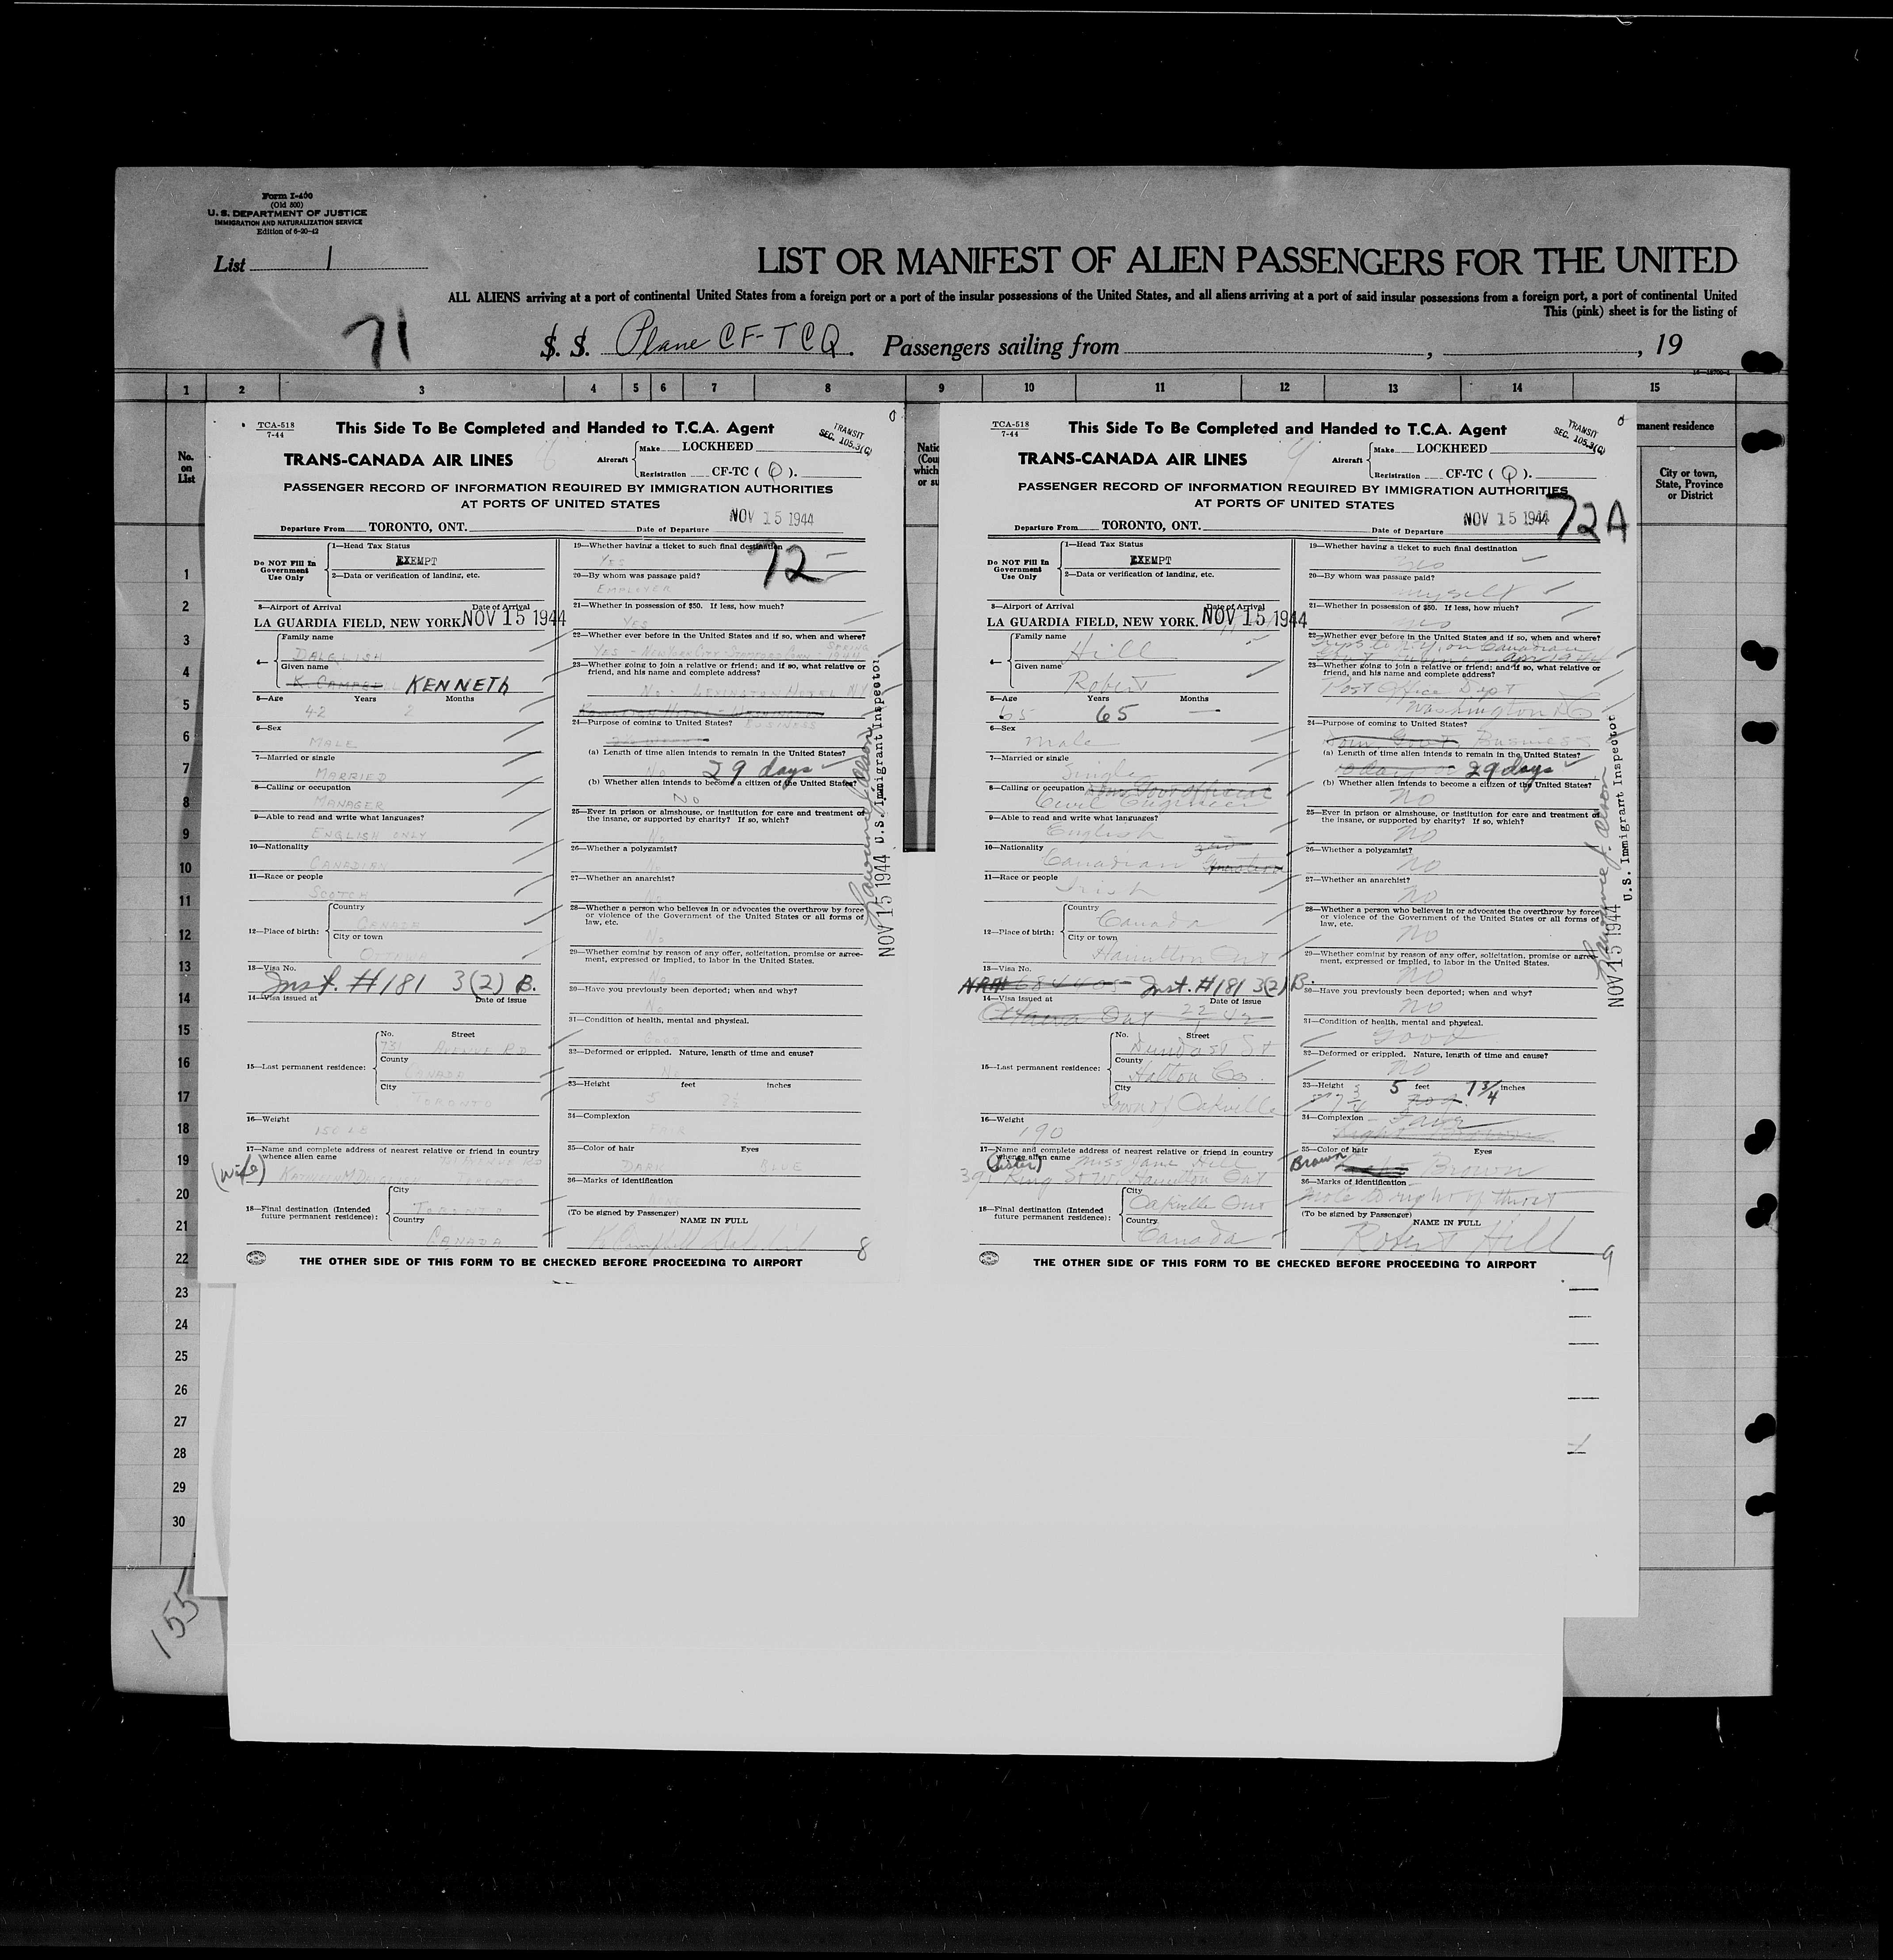 Form I-400
(Old 500)
U. S. DEPARTMENT OF JUSTICE
IMMIGRATION AND NATURALIZATION SERVICE
Edition of 6-20-42
List 1
LIST OR MANIFEST OF ALIEN PASSENGERS FOR THE UNITED
ALL ALIENS arriving at a port of continental United States from a foreign port or a port of the insular possessions of the United States, and all aliens arriving at a port of said insular possessions from a foreign port, a port of continental United
This (pink) sheet is for the listing of
71
S. S. Plane CF-TCQ. Passengers sailing from , , 19
1 2 3 4 5 6 7 8 9 10 11 12 13 14 15
No. on List
manent residence
City or town, State, Province or District
1
2
3
4
5
6
7
8
9
10
11
12
13
14
15
16
17
18
19
20
21
22
23
24
25
26
27
28
29
30
155
TCA-518
7-44
This Side To Be Completed and Handed to T.C.A. Agent
TRANSIT
SEC. 105.3(C)
TRANS-CANADA AIR LINES
8
Aircraft
Make LOCKHEED
Registration CF-TC ( Q ).
PASSENGER RECORD OF INFORMATION REQUIRED BY IMMIGRATION AUTHORITIES
AT PORTS OF UNITED STATES
Departure From TORONTO, ONT. Date of Departure NOV 15 1944
72
Do NOT Fill In Government Use Only
1—Head Tax Status
EXEMPT
2—Data or verification of landing, etc.
3—Airport of Arrival Date of Arrival
LA GUARDIA FIELD, NEW YORK. NOV 15 1944
4— Family name
DALGLISH
Given name
K. CAMPBELL KENNETH
5—Age Years Months
42 2
6—Sex
MALE
7—Married or single
MARRIED
8—Calling or occupation
MANAGER
9—Able to read and write what languages?
ENGLISH ONLY
10—Nationality
CANADIAN
11—Race or people
SCOTCH
12—Place of birth:
Country
CANADA
City or town
OTTAWA
13—Visa No.
Inst. #181 3(2) B.
14—Visa issued at Date of issue
15—Last permanent residence:
No. Street
731 AVENUE RD
County
CANADA
City
TORONTO
16—Weight
150 LB
17—Name and complete address of nearest relative or friend in country
whence alien came
(wife)
TORONTO
18—Final destination (Intended future permanent residence):
City
TORONTO
Country
CANADA
19—Whether having a ticket to such final destination
YES
20—By whom was passage paid?
EMPLOYER
21—Whether in possession of $50. If less, how much?
YES
22—Whether ever before in the United States and if so, when and where?
YES - NEW YORK CITY - STAMFORD CONN - SPRING 1944
23—Whether going to join a relative or friend; and if so, what relative or
friend, and his name and complete address?
NO - LEXINGTON HOTEL N.Y.
24—Purpose of coming to United States? BUSINESS
(a) Length of time alien intends to remain in the United States?
29 days
(b) Whether alien intends to become a citizen of the United States?
NO
25—Ever in prison or almshouse, or institution for care and treatment of
the insane, or supported by charity? If so, which?
No
26—Whether a polygamist?
No
27—Whether an anarchist?
No
28—Whether a person who believes in or advocates the overthrow by force
or violence of the Government of the United States or all forms of
law, etc.
No
29—Whether coming by reason of any offer, solicitation, promise or agree-
ment, expressed or implied, to labor in the United States.
No
30—Have you previously been deported; when and why?
No
31—Condition of health, mental and physical.
GOOD
32—Deformed or crippled. Nature, length of time and cause?
No
33—Height feet inches
5
34—Complexion
FAIR
35—Color of hair Eyes
DARK BLUE
36—Marks of identification
NONE
(To be signed by Passenger)
NAME IN FULL
K Campbell Dalglish
8
THE OTHER SIDE OF THIS FORM TO BE CHECKED BEFORE PROCEEDING TO AIRPORT
NOV 15 1944 U.S. Immigrant Inspector
TCA-518
7-44
This Side To Be Completed and Handed to T.C.A. Agent
TRANSIT
SEC. 105.3(C)
TRANS-CANADA AIR LINES
9
Aircraft
Make LOCKHEED
Registration CF-TC ( Q ).
PASSENGER RECORD OF INFORMATION REQUIRED BY IMMIGRATION AUTHORITIES
AT PORTS OF UNITED STATES
Departure From TORONTO, ONT. Date of Departure NOV 15 1944
72A
Do NOT Fill In Government Use Only
1—Head Tax Status
EXEMPT
2—Data or verification of landing, etc.
3—Airport of Arrival Date of Arrival
LA GUARDIA FIELD, NEW YORK. NOV 15 1944
4— Family name
Hill
Given name
Robert
5—Age Years Months
65 65 —
6—Sex
male
7—Married or single
Single
8—Calling or occupation Dom Govt Official
Civil Engineer
9—Able to read and write what languages?
English
10—Nationality
Canadian
11—Race or people
Irish
12—Place of birth:
Country
Canada
City or town
Hamilton Ont
13—Visa No.
Inst. #181 3(2) B.
14—Visa issued at Date of issue
Ottawa Ont 22 42
15—Last permanent residence:
No. Street
Dundas St
County
Halton Co.
City
Town of Oakville
16—Weight
190
17—Name and complete address of nearest relative or friend in country
whence alien came
(Sister) Miss Jane Hill
391 King St W. Hamilton Ont
18—Final destination (Intended future permanent residence):
City
Oakville Ont
Country
Canada
19—Whether having a ticket to such final destination
yes
20—By whom was passage paid?
myself
21—Whether in possession of $50. If less, how much?
yes
22—Whether ever before in the United States and if so, when and where?
Trips to N.Y. on Canadian
23—Whether going to join a relative or friend; and if so, what relative or
friend, and his name and complete address?
Post Office Dept
Washington DC
24—Purpose of coming to United States?
Dom Govt. Business
(a) Length of time alien intends to remain in the United States?
29 days
(b) Whether alien intends to become a citizen of the United States?
no
25—Ever in prison or almshouse, or institution for care and treatment of
the insane, or supported by charity? If so, which?
no
26—Whether a polygamist?
no
27—Whether an anarchist?
no
28—Whether a person who believes in or advocates the overthrow by force
or violence of the Government of the United States or all forms of
law, etc.
no
29—Whether coming by reason of any offer, solicitation, promise or agree-
ment, expressed or implied, to labor in the United States.
no
30—Have you previously been deported; when and why?
no
31—Condition of health, mental and physical.
Good
32—Deformed or crippled. Nature, length of time and cause?
no
33—Height 5 feet 7 3/4 inches
34—Complexion Fair
35—Color of hair Eyes
Brown Brown
36—Marks of identification
mole to right of throat
(To be signed by Passenger)
NAME IN FULL
Robert Hill
9
THE OTHER SIDE OF THIS FORM TO BE CHECKED BEFORE PROCEEDING TO AIRPORT
NOV 15 1944 U.S. Immigrant Inspector